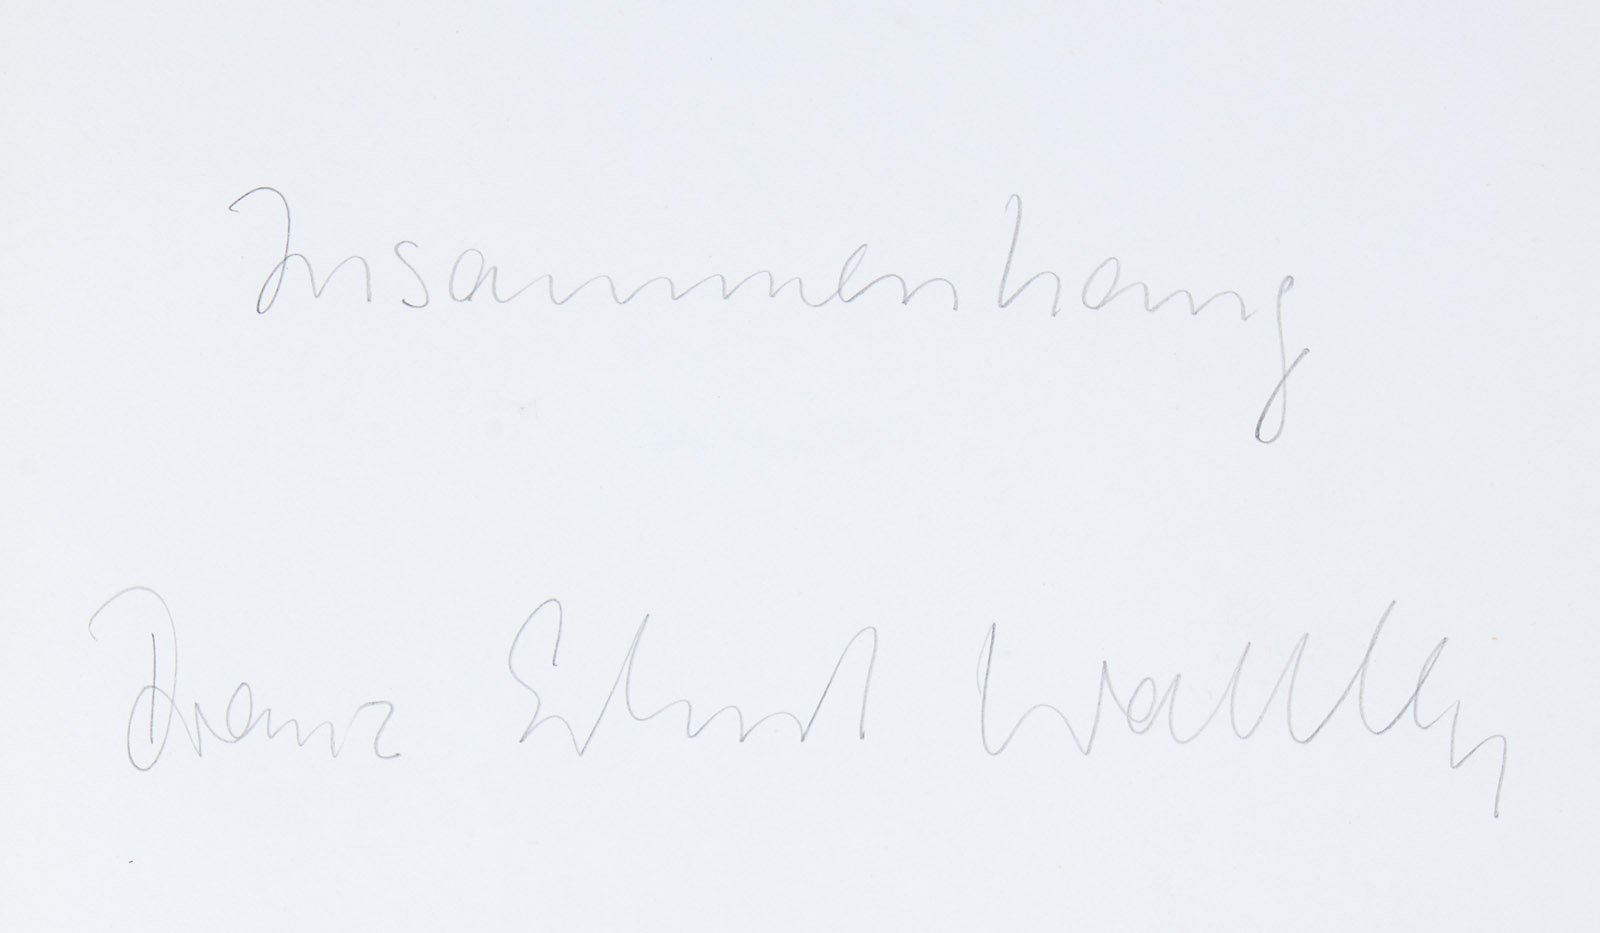 Zusammenhang
Franz Erhard Walther